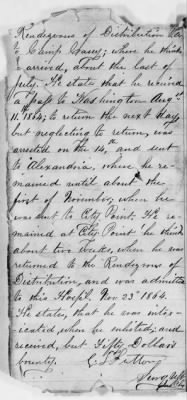 Rendezvous of Distribution
to Camp Casey; where he thinks
arrived, about the last of
July. He states that he received
a pass to Washington Augst
11, 1864; to return the next day
but neglecting to return, was
arrested on the 14, and sent
to Alexandria, where he re-
mained until about the
first of November, when he
was sent to City Point. He re-
mained at City Point he thinks
about two weeks, when he was
returned to the Rendezvous of
Distribution, and was admitted
to this Hospl. Nov 23d 1864.
He states, that he was intox-
icated, when he enlisted; and
received, but Fifty Dollars
bounty.